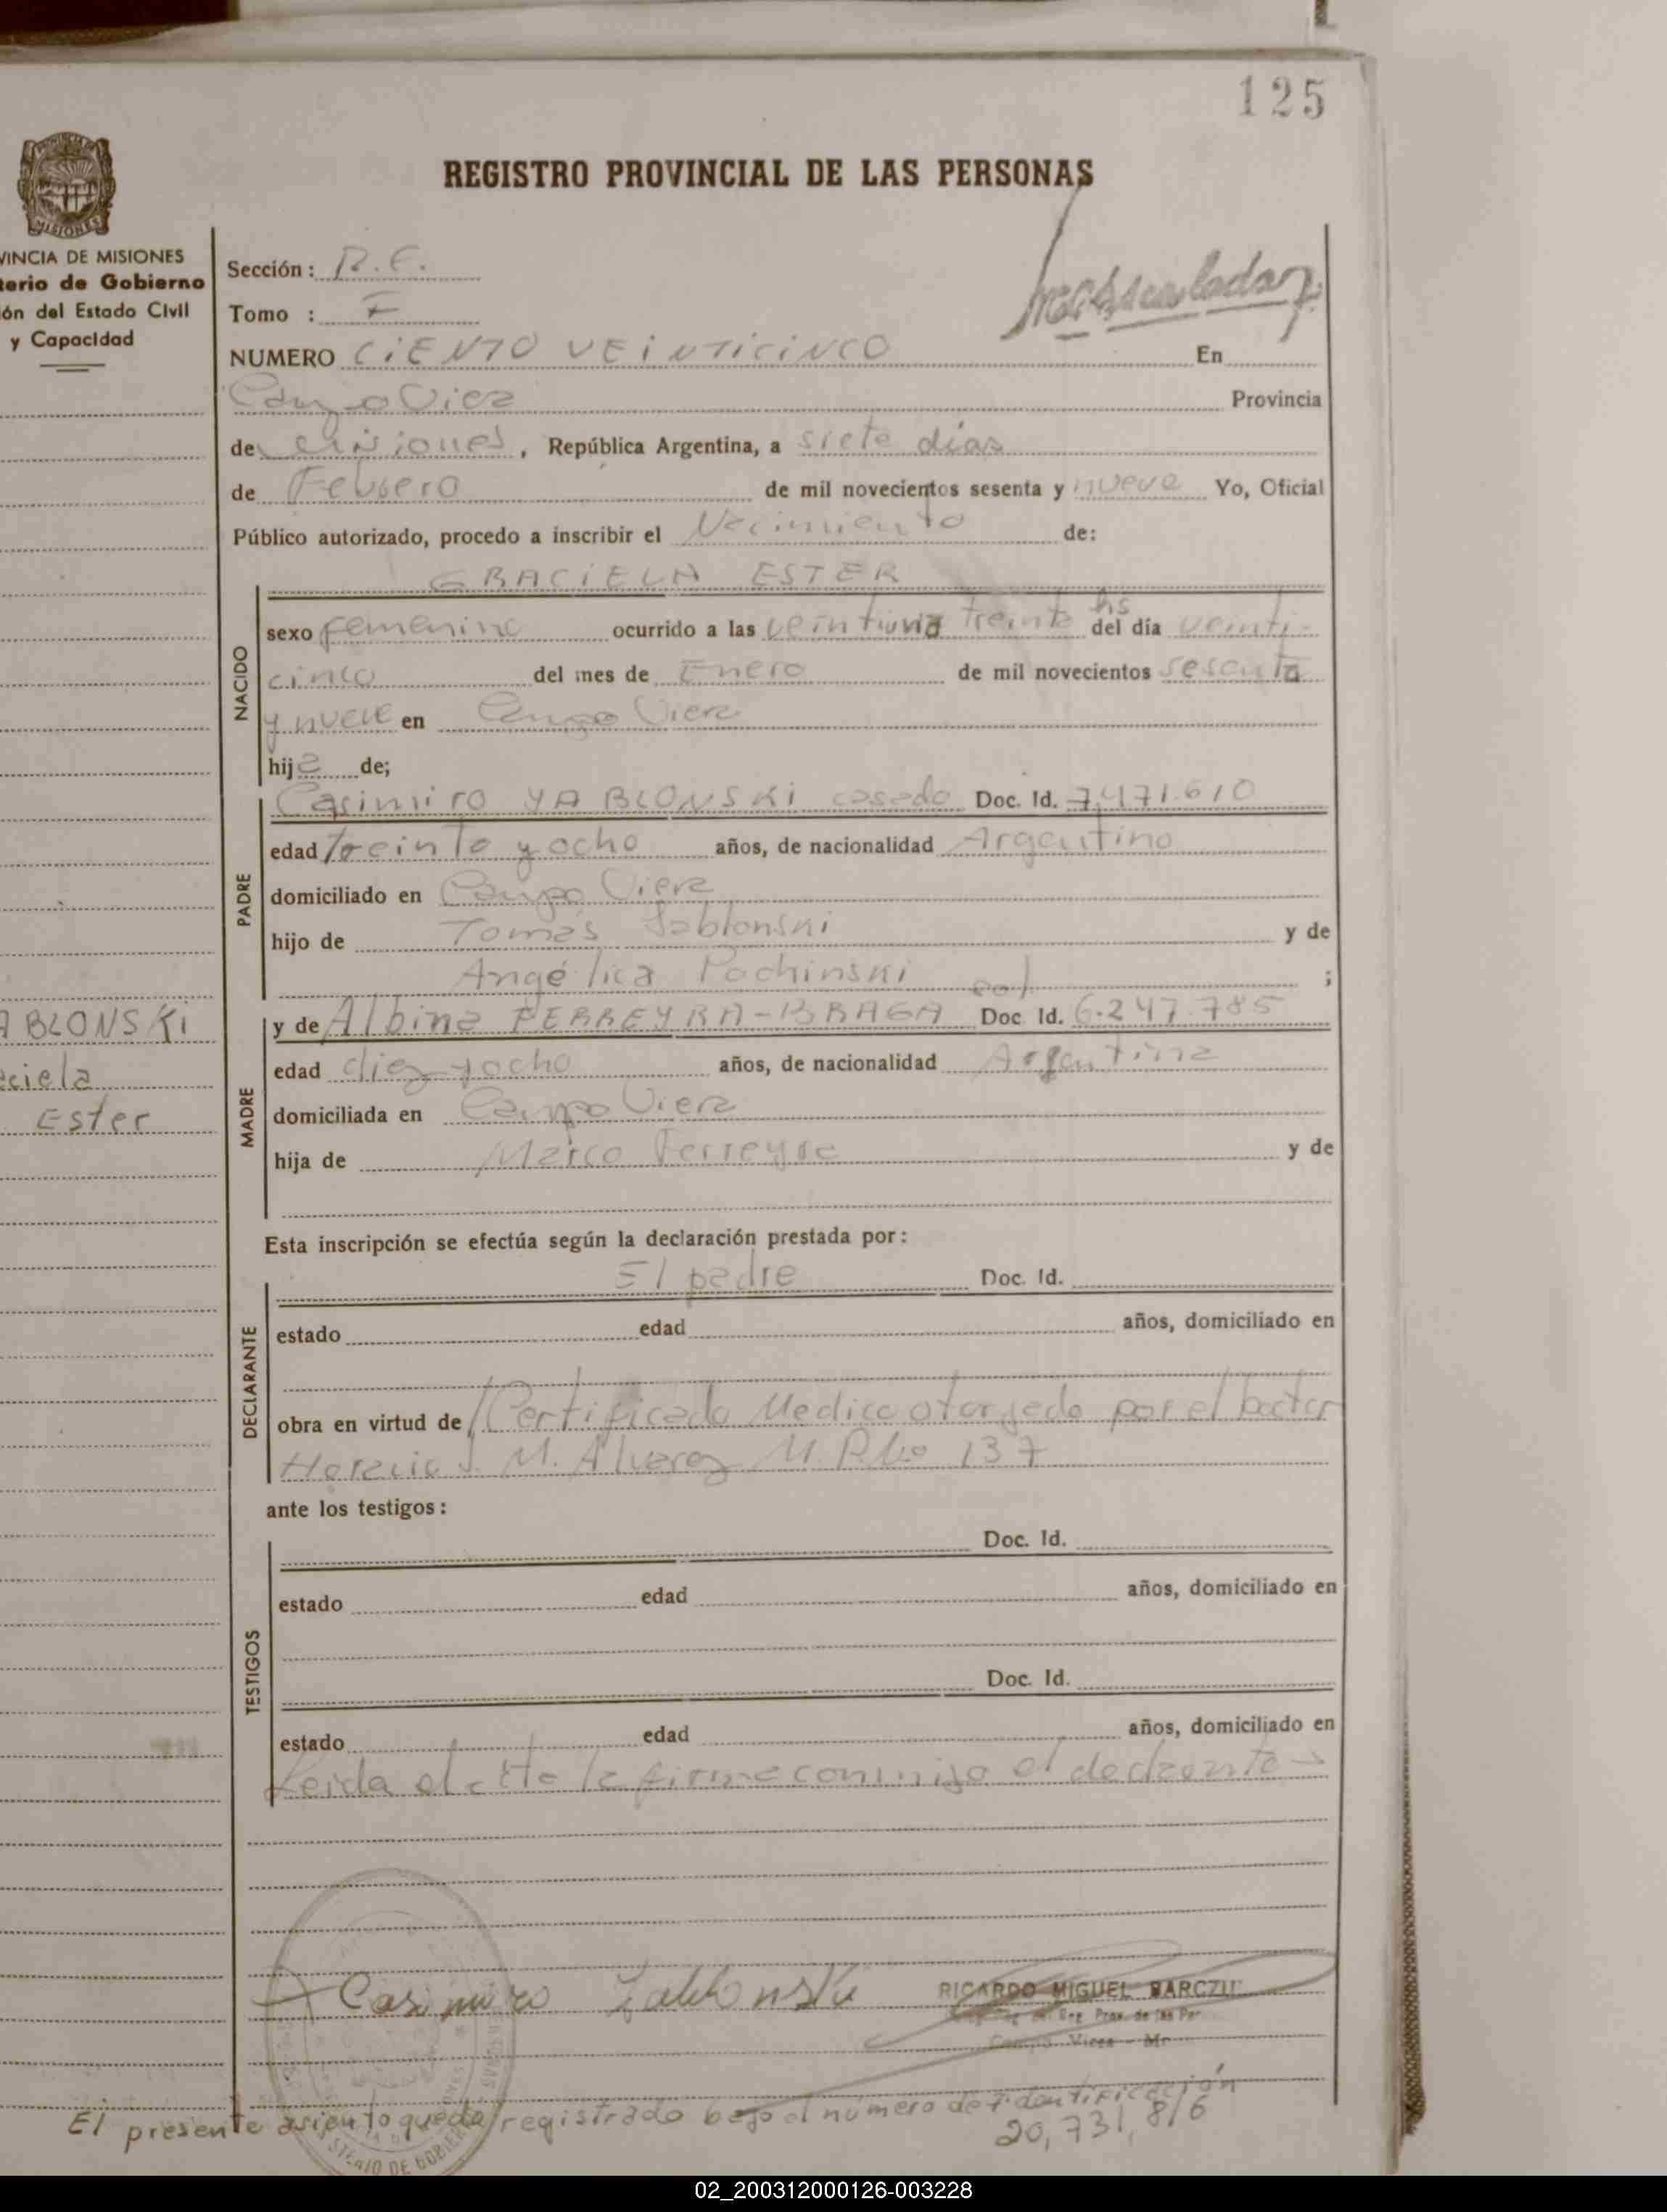 125
REGISTRO PROVINCIAL DE LAS PERSONAS
MISIONES
VINCIA DE MISIONES
terio de Gobierno
ón del Estado Civil
y Capacidad
ABLONSKi
aciela
Ester
Sección: R.E.
Tomo : F
Matriculada
NUMERO CiENTO VEiNTiCiNCO En
Campo Viera Provincia
de Misiones, República Argentina, a siete días
de Febrero de mil novecientos sesenta y nueve Yo, Oficial
Público autorizado, procedo a inscribir el Nacimiento de:
NACIDO
GRACiELA ESTER
sexo femenino ocurrido a las veintiuna treinta hs del día veinti-
cinco del mes de Enero de mil novecientos sesenta
y nueve en Campo Viera
hija de;
PADRE
Casimiro YABLONSKi casado Doc. Id. 7.471.610
edad treinta y ocho años, de nacionalidad Argentino
domiciliado en Campo Viera
hijo de Tomás Jablonski y de
Angélica Pochinski ;
MADRE
y de Albina FERREYRA-BRAGA sol Doc. Id. 6.247.785
edad diez y ocho años, de nacionalidad Argentina
domiciliada en Campo Viera
hija de Marco Ferreyra y de
Esta inscripción se efectúa según la declaración prestada por:
DECLARANTE
El padre Doc. Id.
estado edad años, domiciliado en
obra en virtud de Certificado Medico otorgado por el Doctor
Horacio J. M. Alvarez M.P. No 137
ante los testigos:
TESTIGOS
Doc. Id.
estado edad años, domiciliado en
Doc. Id.
estado edad años, domiciliado en
Leida el acta la firma conmigo el declarante
Casimiro Jablonski
RICARDO MIGUEL BARCZUK
Reg. Prov. de las Per
Campo Viera - Mr
El presente asiento queda registrado bajo el número de identificación
20,731,816
STERIO DE GOBIER
02_200312000126-003228